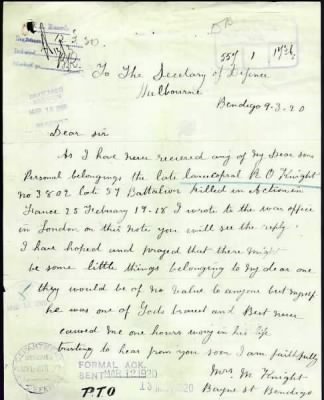 To The Secetary of Defence
Melbourne
Bendigo 9-3-20
Dear sir
As I have never recieved any of my Dear sons
Personal belongings the late lancecopral R O Knight
no 3802 late 37 Battalion Killed in Action in
France 25 Febuary 19-18 I wrote to the war office
in London on this note you will see the reply
I have hoped and prayed that there might
be some little things belonging to my dear one
they would be of no value to anyone but myself
he was one of Gods bravest and Best never
caused me one hours worry in his life
trusting to hear from you soon I am faithfully
Mrs M Knight
Bayne st Bendigo
FORMAL ACK
SENT MAR 12 1920
PTO